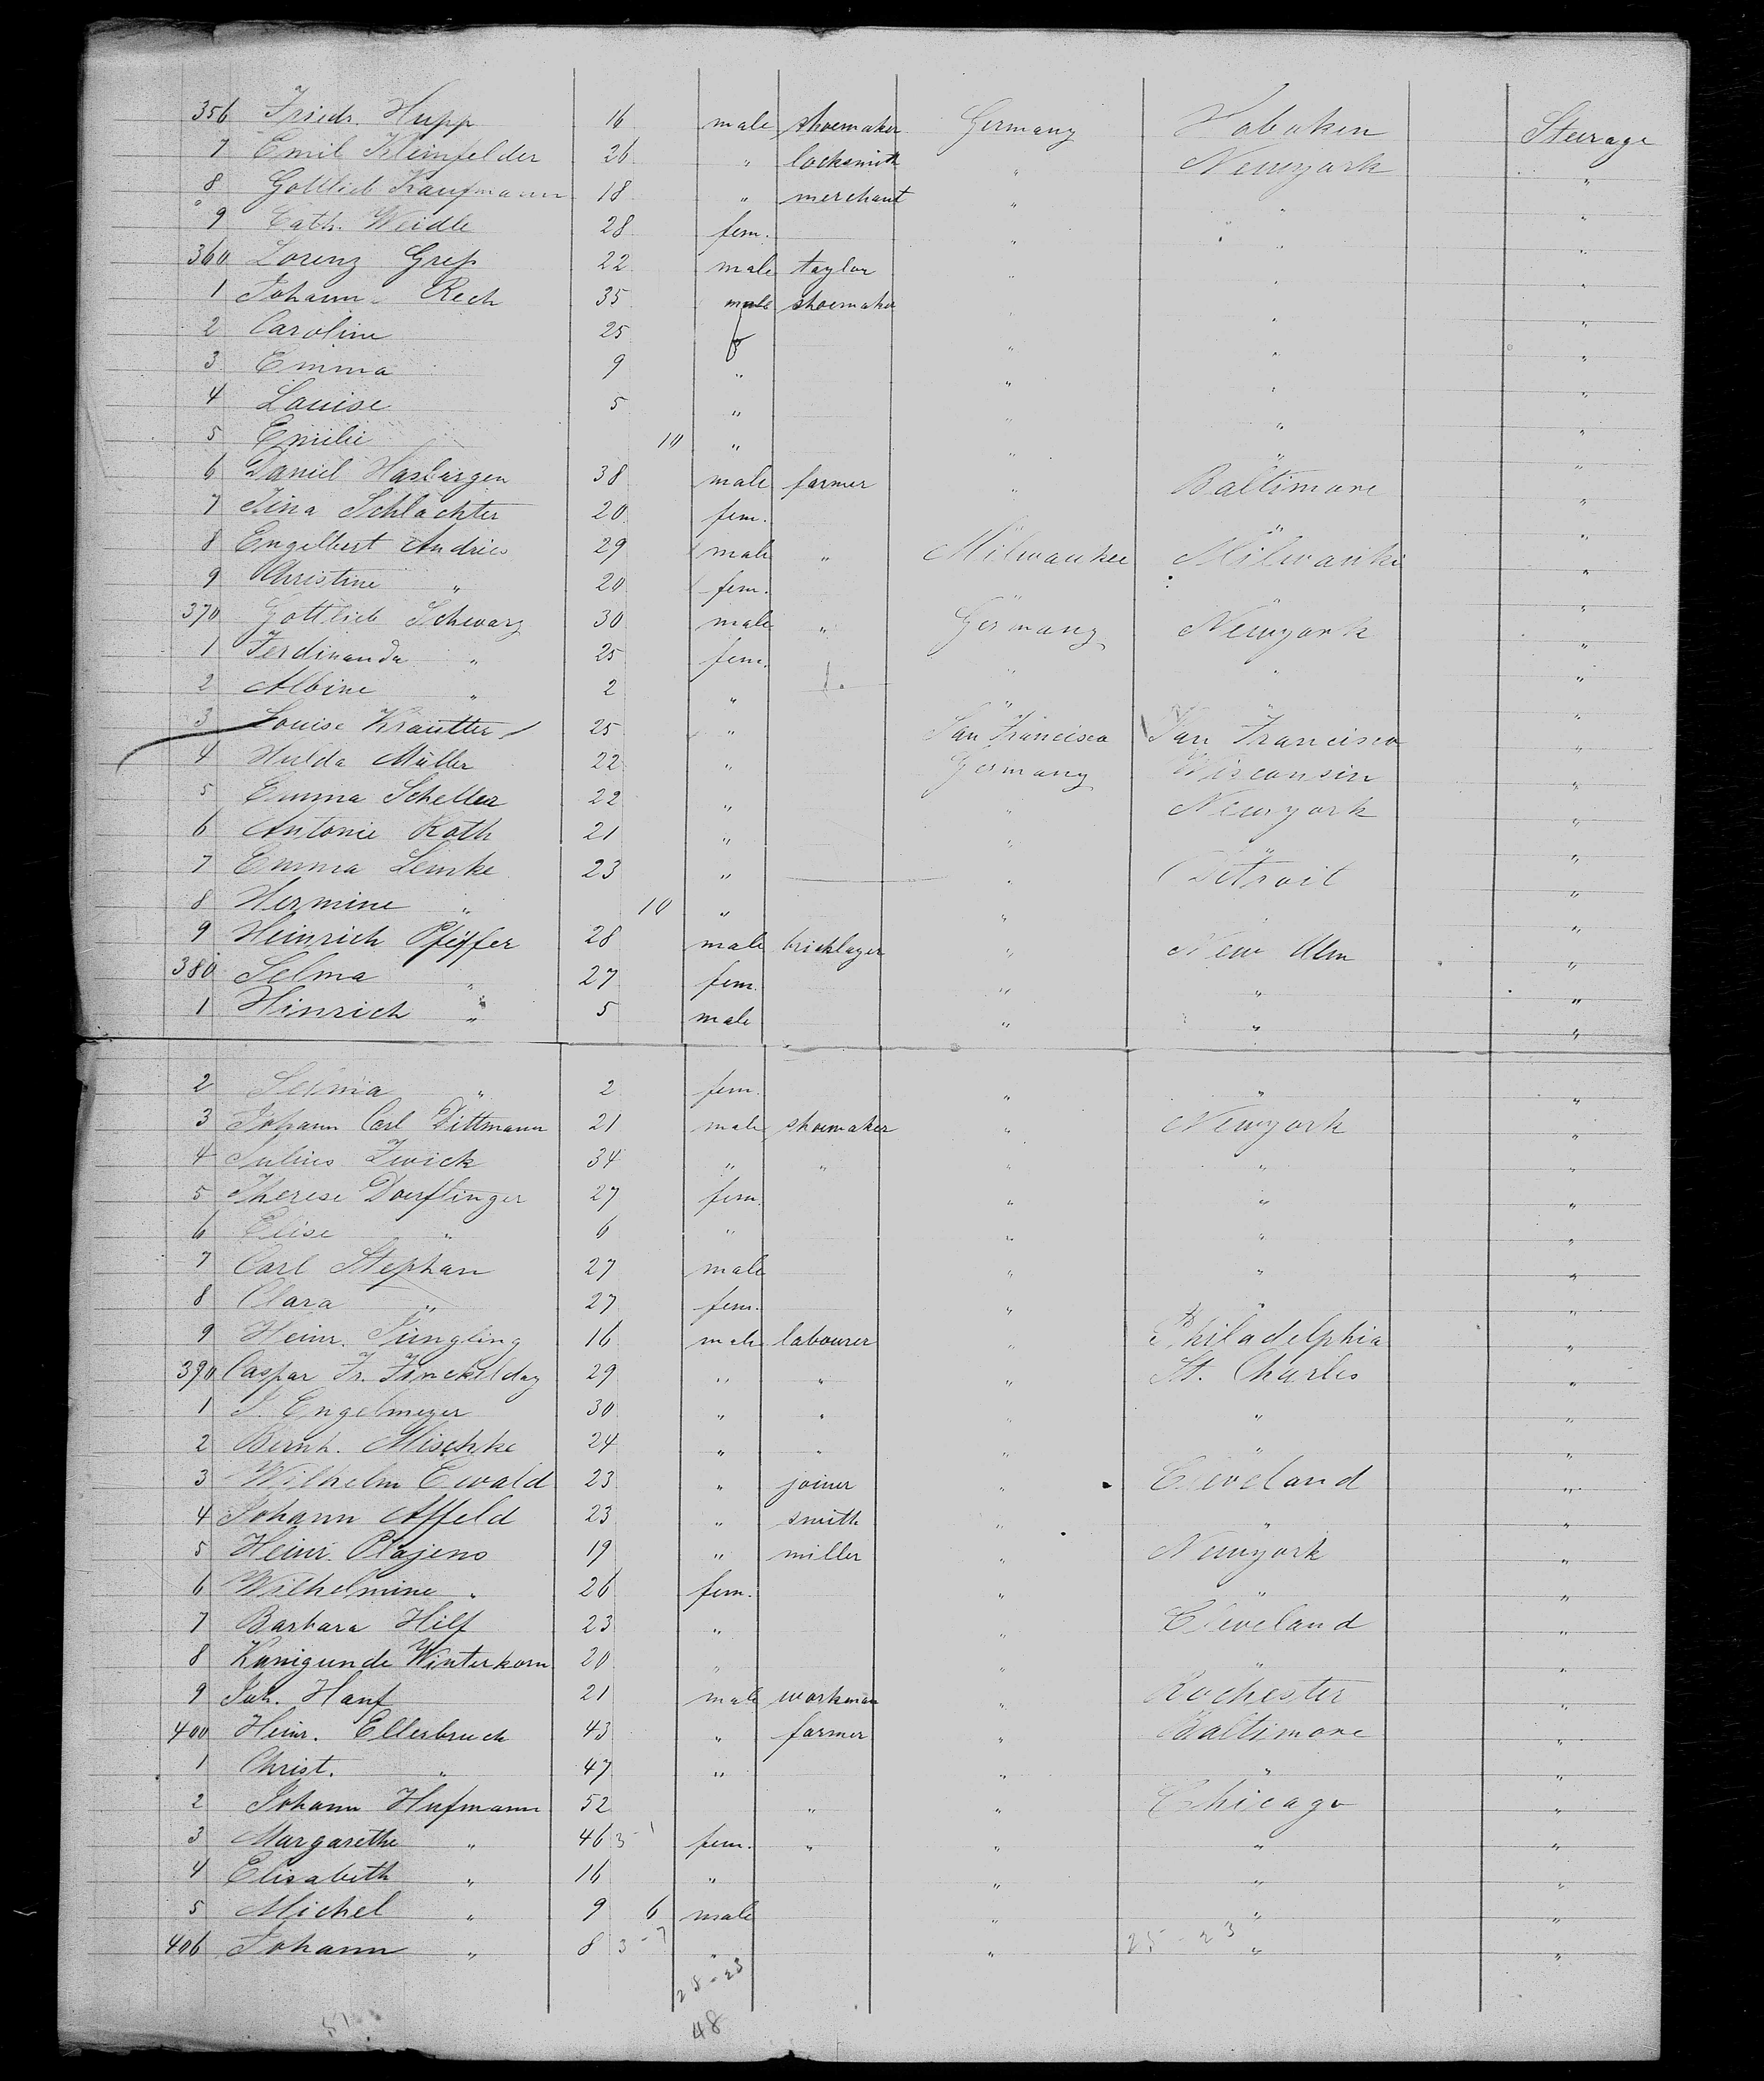 356 Friedr. Hupp 16 male shoemaker Germany Hoboken Steerage
7 Emil Kleinfelder 26 " locksmith " Newyork "
8 Gottlieb Kaufmann 18 " merchant " " "
9 Cath. Weidle 28 fem. " " "
360 Lorenz Gress 22 male taylor " " "
1 Johann Rech 35 male shoemaker " " "
2 Caroline 25 f " " "
3 Emma 9 " " " "
4 Louise 5 " " " "
5 Emilie 10 " " " "
6 Daniel Hasbargen 38 male farmer " Baltimore "
7 Tina Schlachter 20 fem. " "
8 Engelbert Andries 29 male " Milwaukee Milwauki "
9 Christine " 20 fem. " " "
370 Gottlieb Schwarz 30 male " Germany Newyork "
1 Ferdinanda " 25 fem. " " "
2 Albine " 2 " " " "
3 Louise Krautter 25 " San Francisco San Francisco "
4 Hulda Müller 22 " Germany Wisconsin "
5 Emma Scheller 22 " " Newyork "
6 Antonie Roth 21 " " " "
7 Emma Lemke 23 " " Detroit "
8 Hermine " 10 " " " "
9 Heinrich Pfeiffer 28 male bricklayer " New Ulm "
380 Selma " 27 fem. " " "
1 Hinrich " 5 male " " "
2 Selma " 2 fem. " " "
3 Johann Carl Dittmann 21 male shoemaker " Newyork "
4 Julius Zwick 34 " " " " "
5 Therese Doerflinger 27 fem. " " "
6 Elise " 6 " " " "
7 Carl Stephan 27 male " " "
8 Clara " 27 fem. " " "
9 Heinr. Jüngling 16 male labourer " Philadelphia "
390 Caspar Fr. Finckelday 29 " " " St. Charles "
1 S. Engelmeyer 30 " " " " "
2 Bernh. Mischke 24 " " " " "
3 Wilhelm Ewald 23 " joiner " Cleveland "
4 Johann Affeld 23 " smith " " "
5 Heinr. Plajens 19 " miller " Newyork "
6 Wilhelmine " 26 fem. " " "
7 Barbara Hilf 23 " " Cleveland "
8 Kunigunde Winterkorn 20 " " " "
9 Joh. Hanf 21 male workman " Rochester "
400 Heinr. Ellerbruch 43 " farmer " Baltimore "
1 Christ. " 47 " " " "
2 Johann Hufmann 52 " " Chicago "
3 Margarethe " 46 3-1 fem. " " " "
4 Elisabeth " 16 " " " "
5 Michel " 9 6 male " " "
406 Johann " 8 3-7 " " 25-23 " "
28-23
51
48